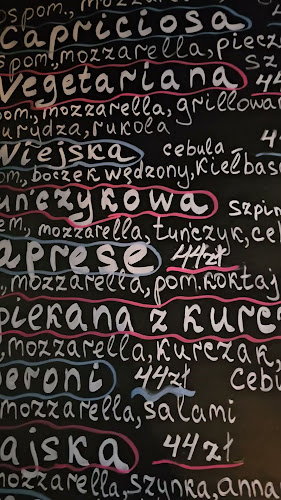 spom., mozzarella,
Capriciosa
spom., mozzarella, piecz
Vegetariana 44
om., mozzarella, grillowan
urydza, rukola
Wiejska cebula 4
om., boczek wędzony, kiełbasa
uńczykowa szpin
em., mozzarella, tuńczyk, ceb
aprese 44zł
, mozzarella, pom. koktaj
piekana z kurc
, mozzarella, kurczak,
eroni 44zł cebu
mozzarella, salami
ajska 44zł
mozzarella, szynka, anna